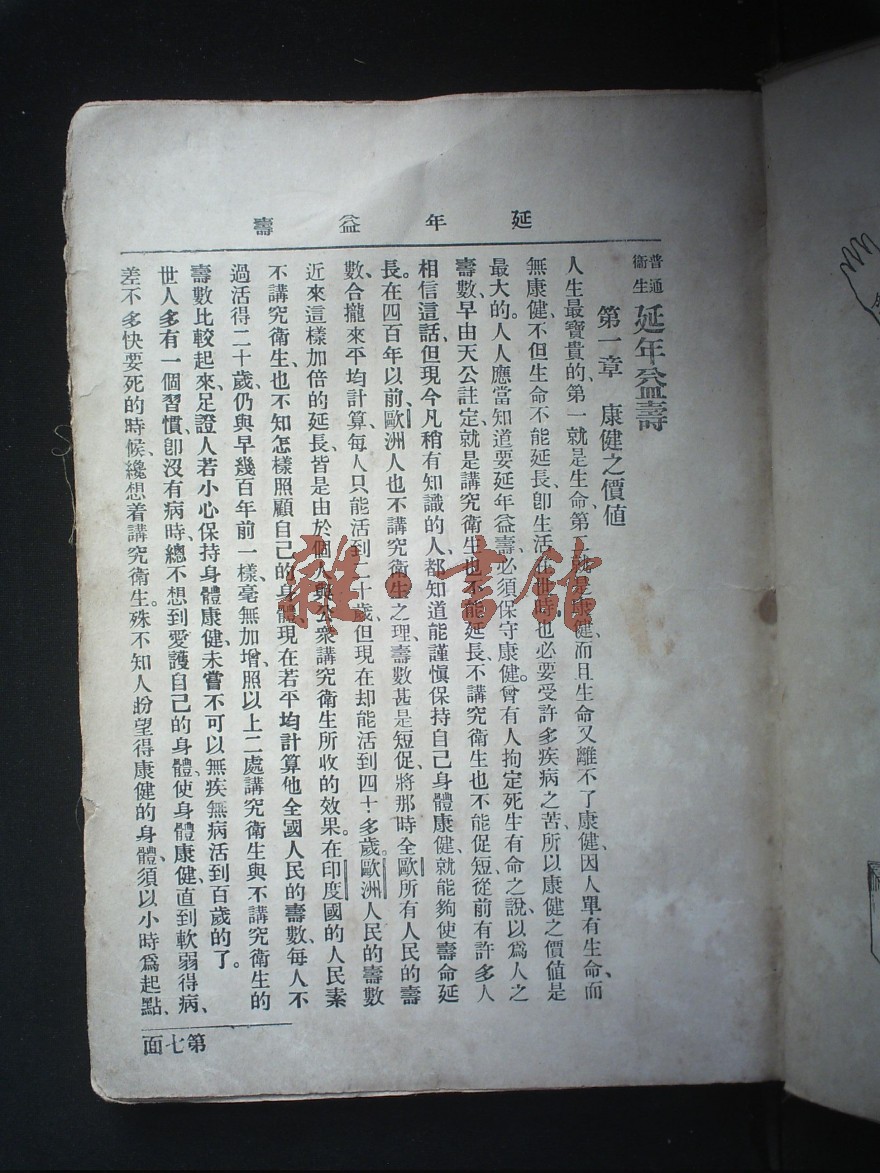 延年益壽
普通
衞生
延年益壽
第一章　康健之價値
人生最寶貴的、第一就是生命、第二就是康健、而且生命又離不了康健、因人單有生命、而
無康健、不但生命不能延長、卽生活在世時也必要受許多疾病之苦、所以康健之價値是
最大的。人人應當知道要延年益壽、必須保守康健。曾有人拘定死生有命之說、以爲人之
壽數、早由天公註定、就是講究衛生也不能延長、不講究衛生也不能促短、從前有許多人
相信這話、但現今凡稍有知識的人、都知道能謹愼保持自己身體康健、就能夠使壽命延
長。在四百年以前、歐洲人也不講究衛生之理、壽數甚是短促、將那時全歐所有人民的壽
數、合攏來平均計算、每人只能活到二十歲、但現在却能活到四十多歲。歐洲人民的壽數
近來這樣加倍的延長、皆是由於個人與公衆講究衛生所收的效果。在印度國的人民素
不講究衛生、也不知怎樣照顧自己的身體、現在若平均計算他全國人民的壽數、每人不
過活得二十歲、仍與早幾百年前一樣、毫無加增、照以上二處講究衛生與不講究衛生的
壽數比較起來、足證人若小心保持身體康健、未嘗不可以無疾無病活到百歲的了。
世人多有一個習慣、卽沒有病時、總不想到愛護自己的身體、使身體康健、直到軟弱得病、
差不多快要死的時候、纔想着講究衛生。殊不知人扮望得康健的身體、須以小時爲起點、
第七面
雜·書館